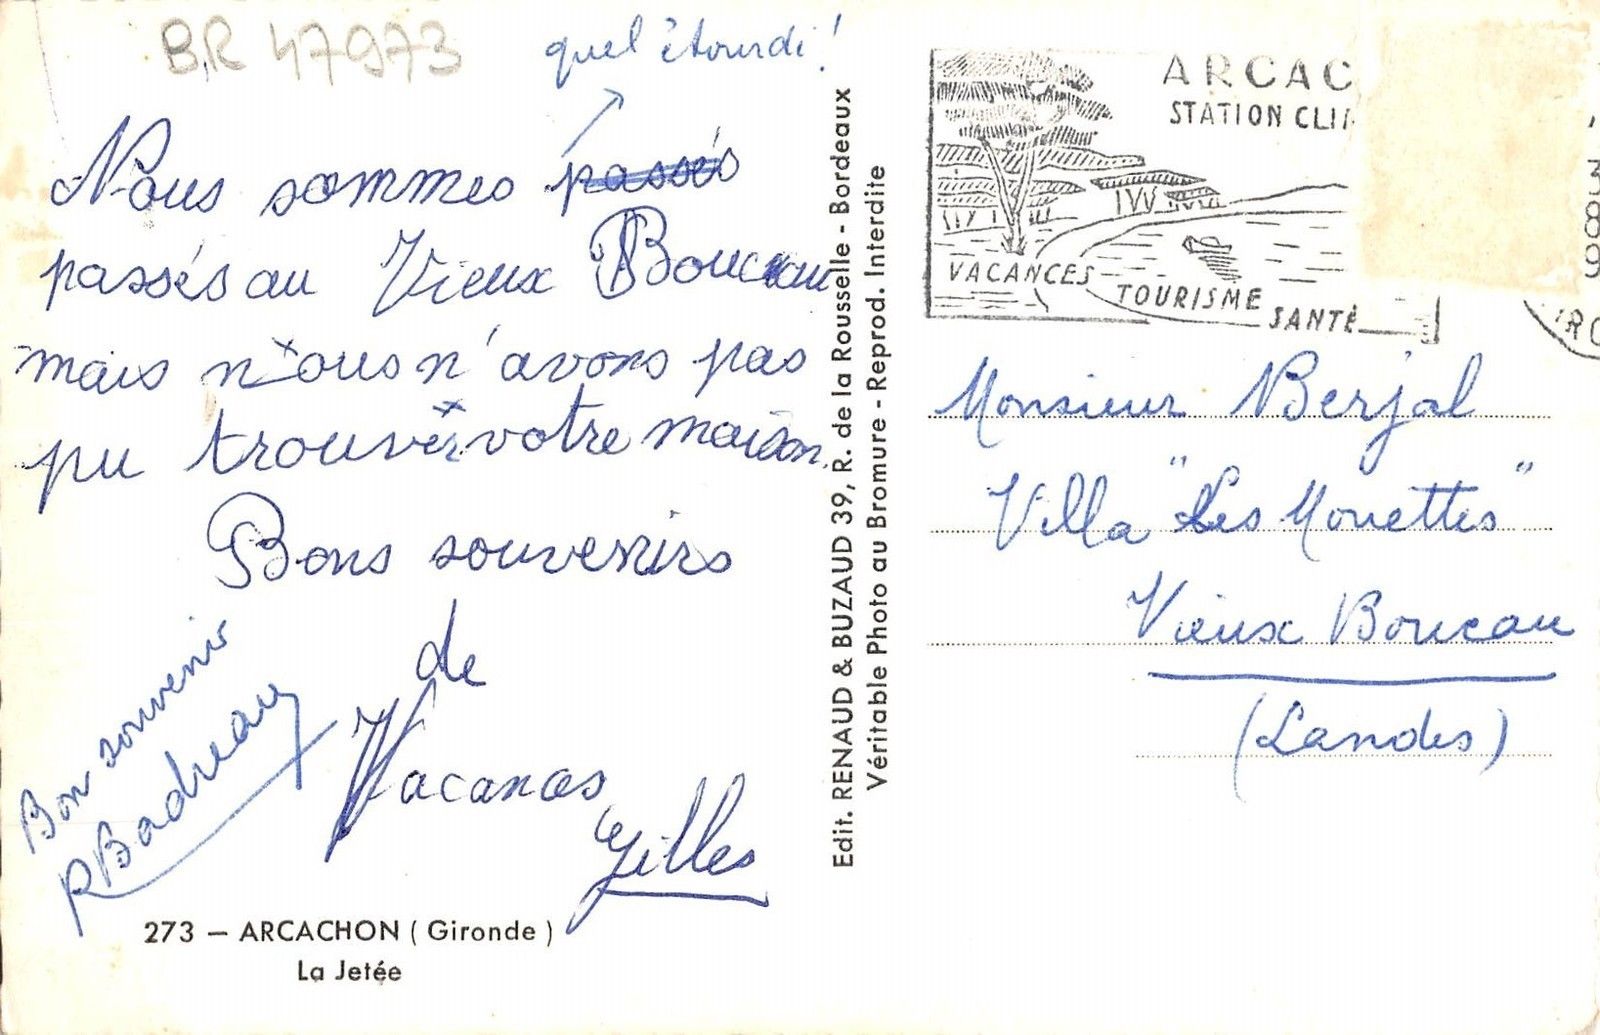 BR 47973
quel étourdi !
Nous sommes passés
passés au Vieux Boucau
mais nous n'avons pas
pu trouver votre maison.
Bons souvenirs
de
Vacances
Gilles
Bon souvenir
R Badreau
273 — ARCACHON ( Gironde )
La Jetée
Edit. RENAUD & BUZAUD 39, R. de la Rousselle - Bordeaux
Véritable Photo au Bromure - Reprod. Interdite
ARCAC
STATION CLI
VACANCES
TOURISME
SANTÉ
Monsieur Berjal
Villa "Les Mouettes"
Vieux Boucau
(Landes)